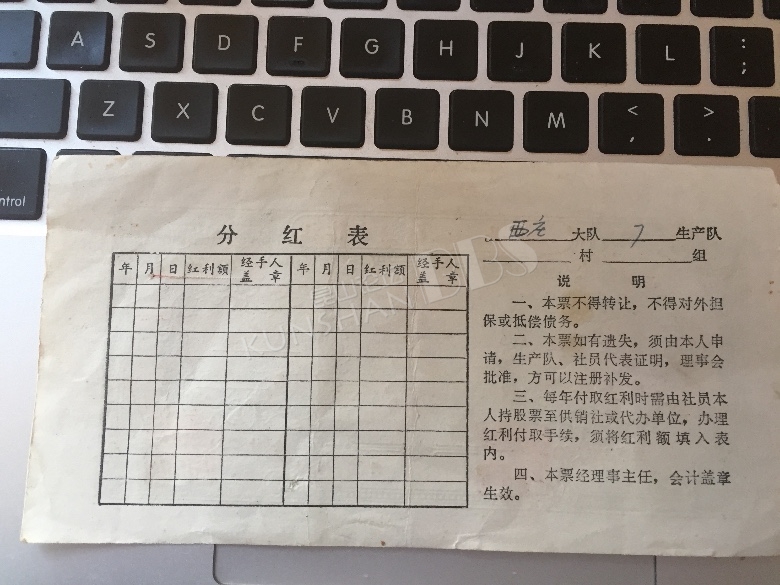 A S D F G H J K L : ;
Z X C V B N M < , > .
ntrol
分红表
年 月 日 红利额 经手人盖章 年 月 日 红利额 经手人盖章
西庄 大队 7 生产队
村 组
说明
一、本票不得转让，不得对外担
保或抵偿债务。
二、本票如有遗失，须由本人申
请，生产队、社员代表证明，理事会
批准，方可以注册补发。
三、每年付取红利时需由社员本
人持股票至供销社或代办单位，办理
红利付取手续，须将红利额填入表
内。
四、本票经理事主任，会计盖章
生效。
KUNSHAN BBS